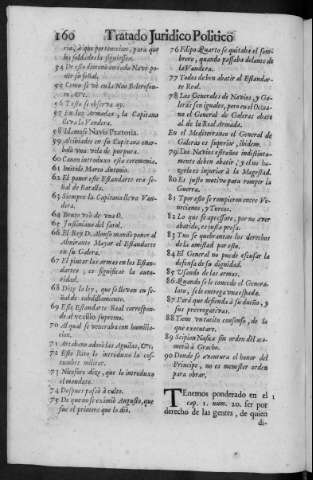 160 Tratado Juridico Politico
ria, à que pertenecian, para que
los soldados la siguiessen.
54 De esto dimanò en cada Navi poner
su señal,
55 Como se vè en la Nao Belorofontea,
&c.
56 Y esto se observa oy.
57 En las Armadas, la Capitana
lleva la Vandera.
58 Llamase Navis Prætoria.
59 Alcibiades en su Capitana enarbolò
una vela de purpura.
60 Canon introduxo esta ceremonia.
61 Imitòle Marco Antonio.
62 El poner este Estandarte era señal
de Batalla.
63 Siempre la Capitana lleva Vandera.
64 Bruto vsò de vna
65 Justiniano del farol.
66 El Rey D. Alonso mandò poner al
Almirante Mayor el Estandarte
en su Galera.
67 El pintar las armas en los Estandartes,
es significar la autoridad.
68 Dize la ley, que se lleven en señal
de cabdillamiento.
69 Este Estandarte Real corresponde
al vexillo supremo.
70 Al qual se veneraba con humillacion.
71 Artabano adorò las Aguilas, &c.
72 Este Rito le introduxo la costumbre
militar.
73 Nicefora dize, que le introduxo
el mandato.
74 Despues passò à culto.
75 De que no se eximiò Augusto, que
fue el primero que lo diò.
76 Filipo Quarto se quitaba el sombrero,
quando passaba delante de
la Vandera.
77 Todos deben abatir el Estandarte
Real.
78 Los Generales de Navios, y Galeras
son iguales, pero en el Occeano
el General de Galeras abate
al de la Real Armada.
En el Mediterraneo el General de
Galeras es superior, ibidem.
79 Los Navios estraños indistintamente
deben abatir, y el no hazerlo
es injuriar à la Magestad.
80 Es justo motivo para romper la
Guerra.
81 Por esto se rompieron entre Venecianos,
y Turcos.
82 Lo que se apressare, por no aver
abatido, es justa presa.
83 Y no se quebrantan los derechos
de la amistad por esto.
84 El General no puede escusar la
defensa de su dignidad.
85 Usando de las armas.
86 Quando se le concede el Generalato,
se le entrega vna espada.
87 Para que defienda à su dueño, y
sus prerrogativas.
88 Tum consilio consenso, de lo
que executare.
89 Scipion Nasica sin orden del acometiò
à Gracho.
90 Donde se aventura el honor del
Principe, no es menester orden
para obrar.
TEnemos ponderado en el 1
cap. 1. num. 20. ser por
derecho de las gentes, de quien
di-